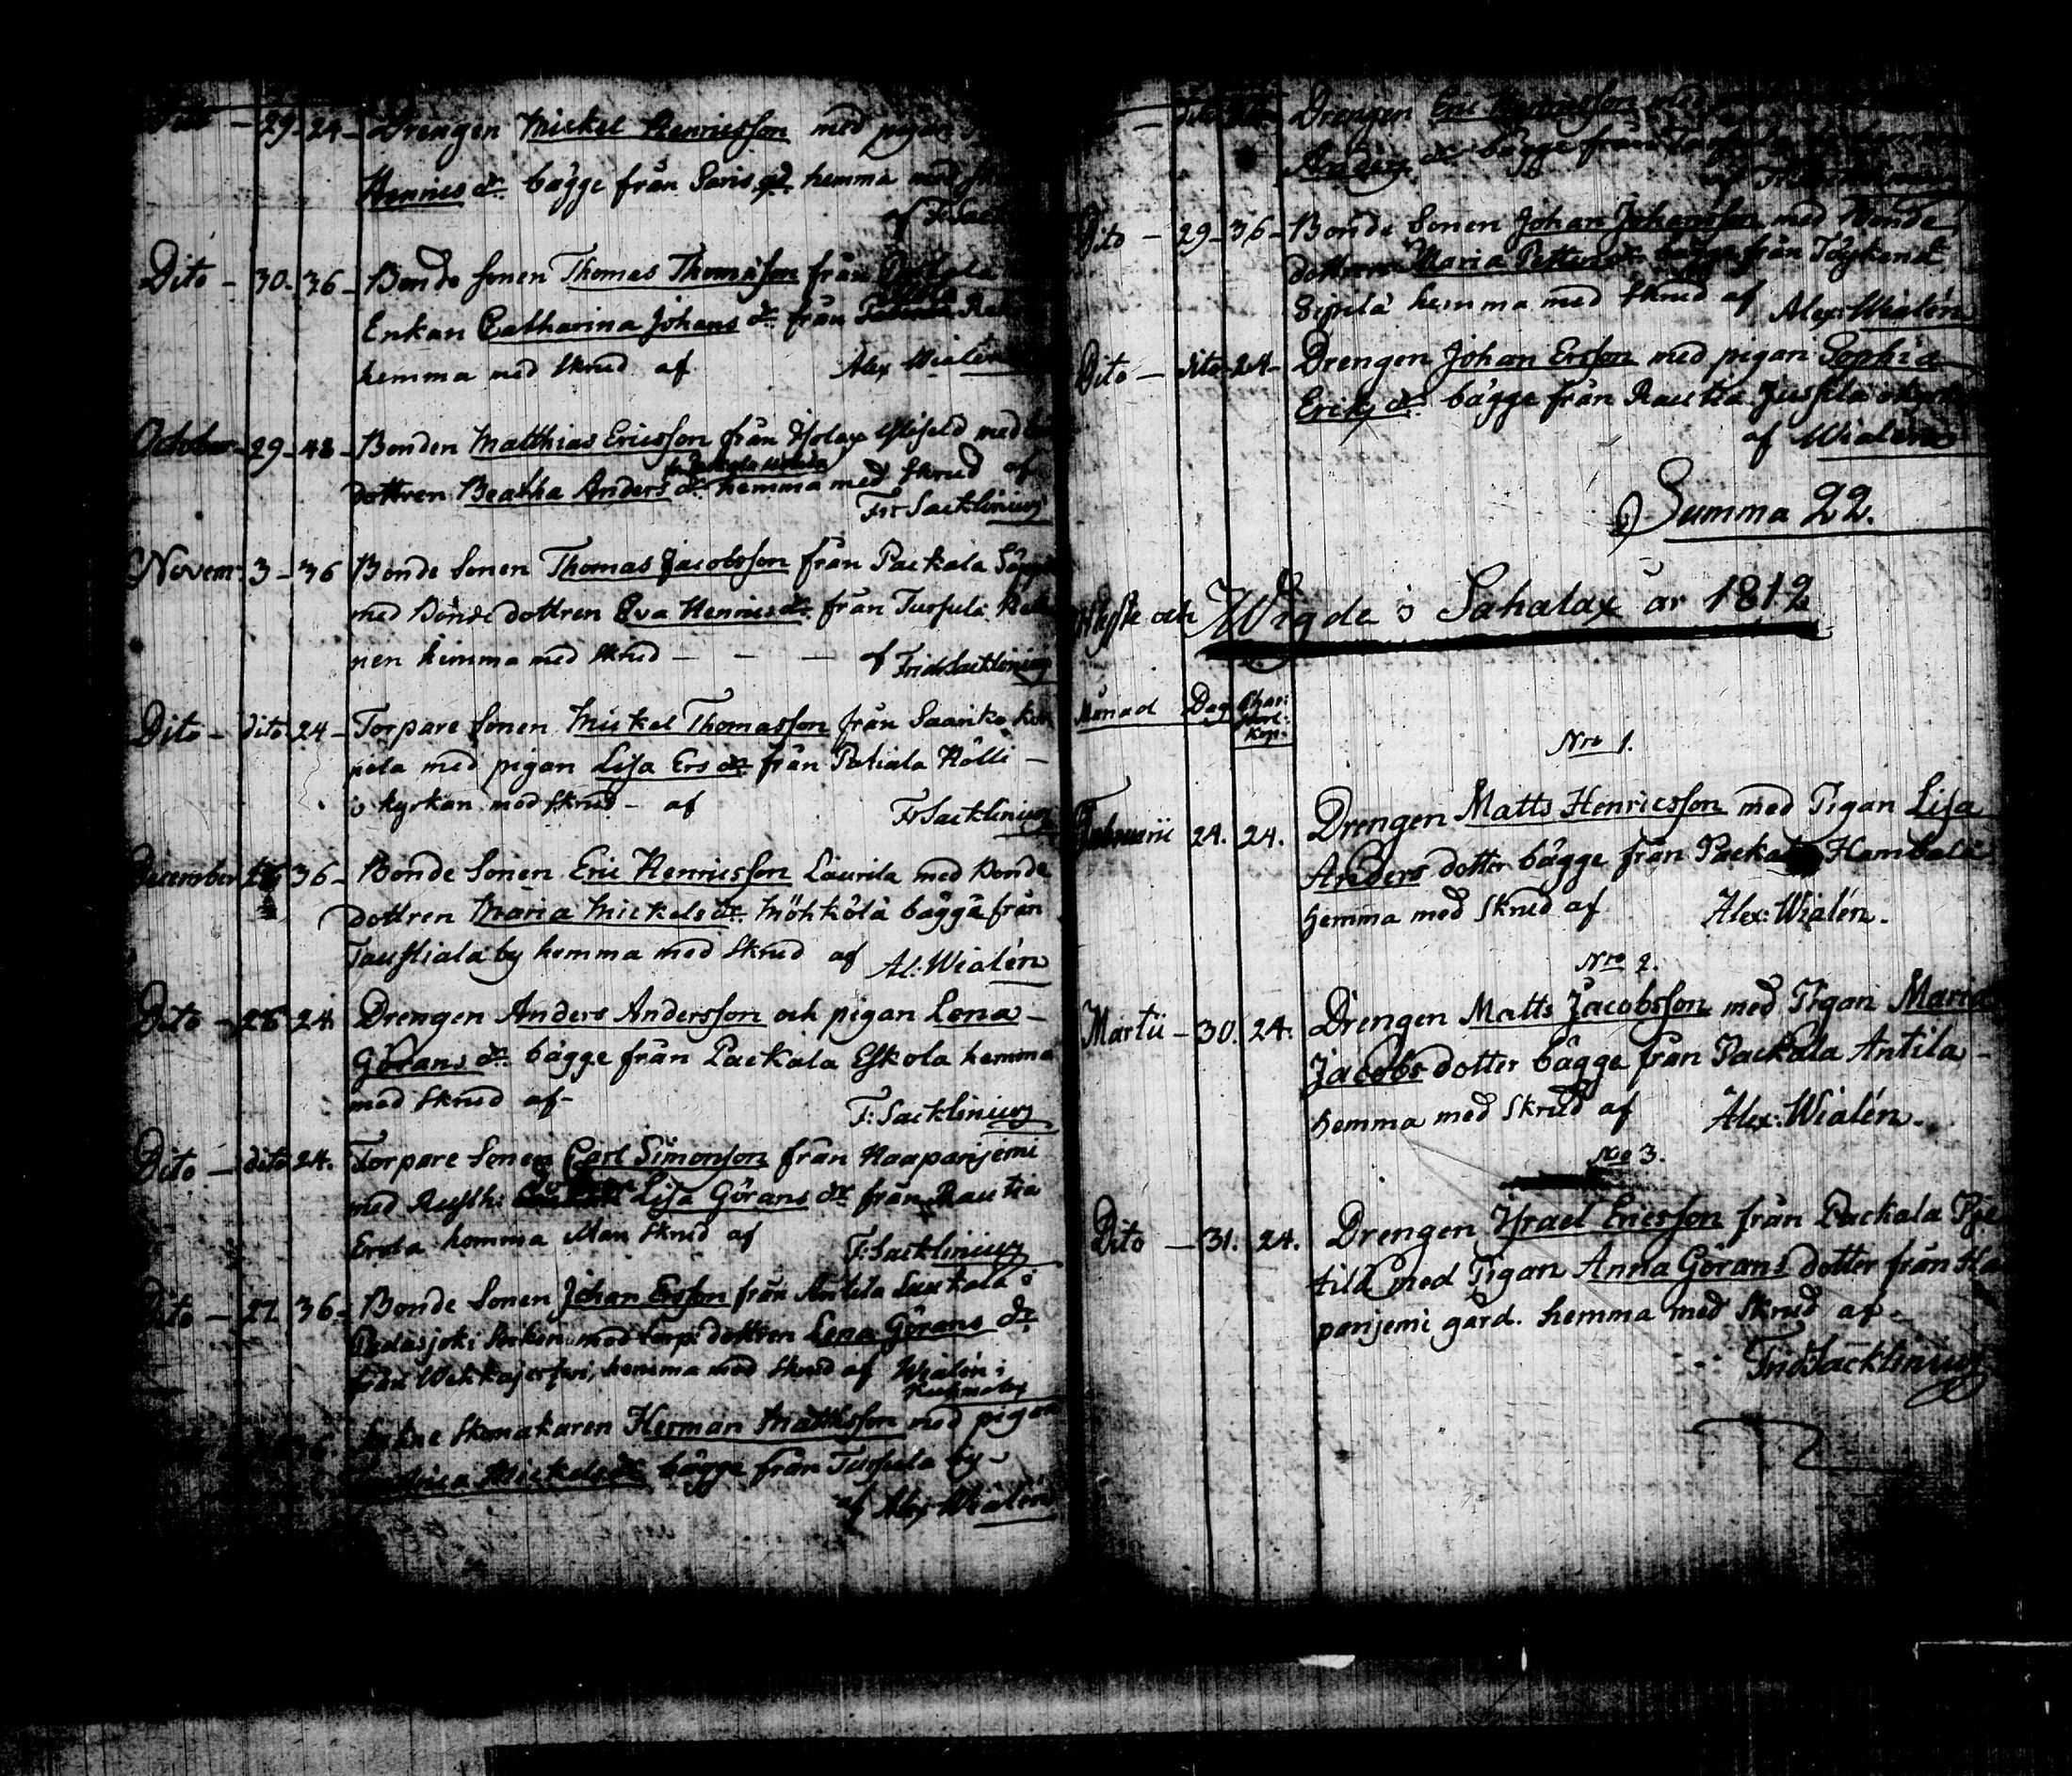 Dito - 29 - 24 - Drengen Mickel Henricsson med pigan
Henrics dr. bägge från Saris gd. hemma med
af F: Sack
Dito - 30 - 36 - Bonde Sonen Thomas Thomasson från
Enkan Catharina Johans dr. från
hemma med Skrud af Alex Wialén
October - 29 - 48 - Bonden Matthias Ericsson från med
dottren Beatha Anders dr. hemma med Skrud af
Fr: Sacklinius
Novem: 3 - 36 Bonde Sonen Thomas Jacobsson från Packala
med Bonde dottren Eva Henrics dr. från Tursula
nen hemma med Skrud - - - af Frid: Sacklinius
Dito - dito 24 - Torpare Sonen Mickel Thomasson från Saariko
med pigan Lisa Ers dr. från Pohiala Hölli -
i kyrkan med Skrud - af Fr Sacklinius
December 36 - Bonde Sonen Eric Henricsson Laurila med Bonde
dottren Maria Mickels dr. Möhkölä bägge från
Taustiala by hemma med Skrud af Al: Wialén
Dito - 26 24. Drengen Anders Andersson och pigan Lena -
Görans dr. bägge från Packala Eskola hemma
med Skrud af - F: Sacklinius
Dito - dito 24. Torpare Sonen Carl Simonson från Haapanjemi
med Rusth: Lisa Görans dr från Rautia
Erola hemma utan Skrud af F: Sacklinius
Dito - 27. 36 - Bonde Sonen Johan Ersson från Antila i
Padasjoki Sockn med torp: dottren Lena Görans dr
från hemma med Skrud af Wialén i
Kuhmoby
Skomakaren Herman Matthsson med pigan
Mickels dr. bägge från Tursula by -
af Alex Wialén
dito Drengen Eric Henricsson med
Anders dr. bägge från
af
Dito - 29 - 36 - Bonde Sonen Johan Johansson med Bonde
dottren Maria Petters dr. bägge från
hemma med Skrud af Alex: Wialén
Dito - dito - 24 - Drengen Johan Ersson med pigan Sophia
Eriks dr. bägge från Rautia Jussila
af Wialén
Summa 22.
Lyste och Wigde i Sahalax år 1812
Månad Dag Char:
Kop:
Nro 1.
Februarii 24. 24. Drengen Matts Henricsson med Pigan Lisa
Anders dotter bägge från Hambala
hemma med Skrud af Alex: Wialén.
Nro 2.
Martii - 30. 24. Drengen Matts Jacobsson med Pigan Maria
Jacobs dotter bägge från Packala Antila -
hemma med Skrud af Alex: Wialén.
Nro 3.
Dito - 31. 24. Drengen Israel Ericsson från Packala
tilä med Pigan Anna Görans dotter från Ha
panjemi gård. hemma med Skrud af -
Frid Sacklinius